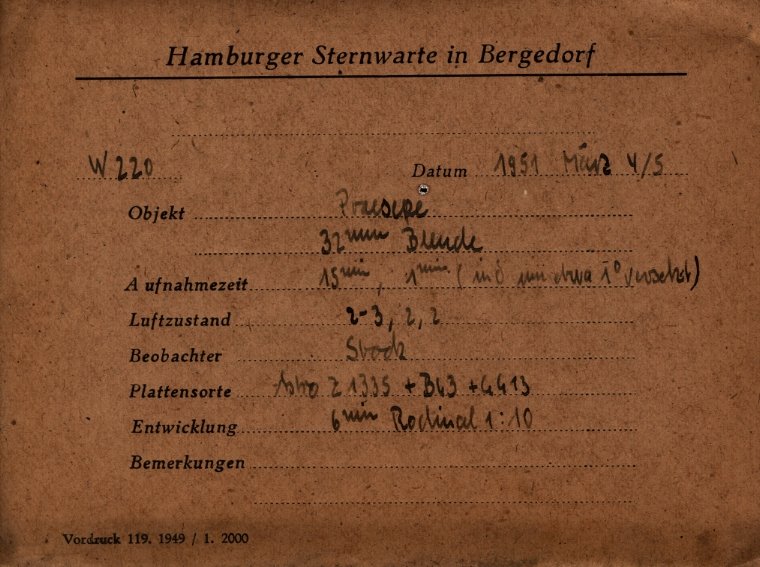 Hamburger Sternwarte in Bergedorf
W 220 Datum 1951 März 4/5
Objekt Praesepe
32 mm Blende
Aufnahmezeit 15 min, 1 min (in δ um etwa 1° versetzt)
Luftzustand 2-3, 2, 2
Beobachter Stock
Plattensorte Astro Z 1335 + BG3 + GG13
Entwicklung 6 min Rodinal 1:10
Bemerkungen
Vordruck 119. 1949 / 1. 2000